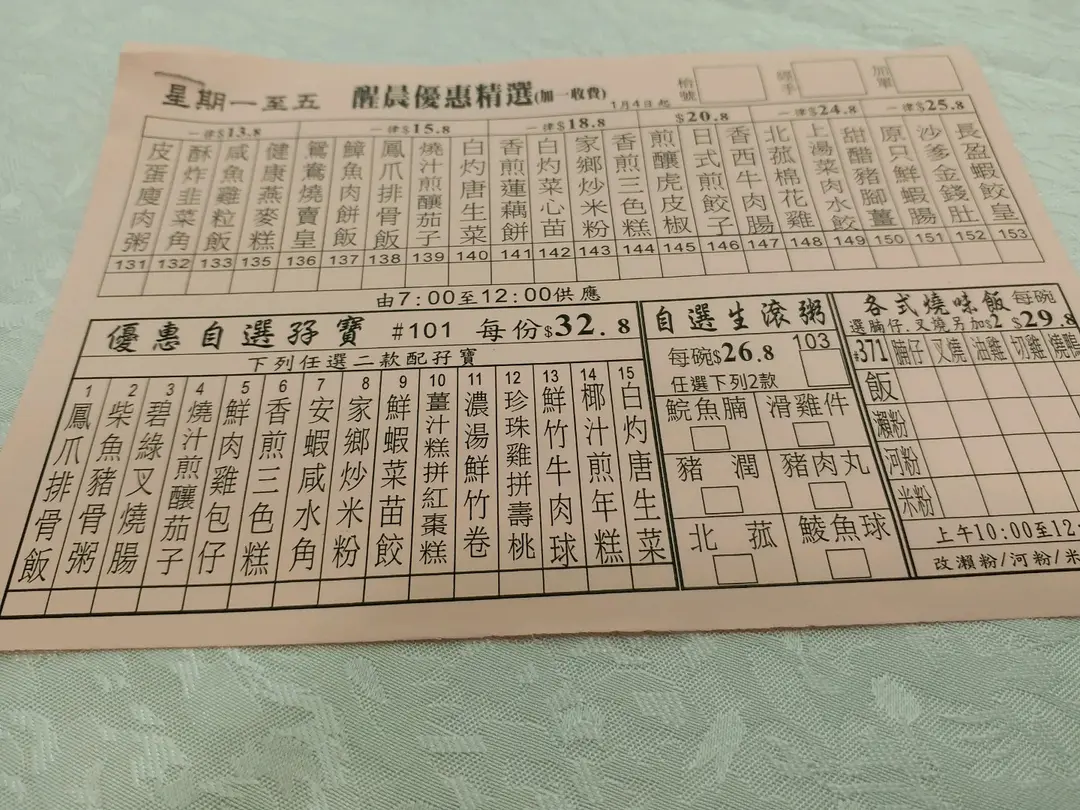 星期一至五 醒晨優惠精選(加一收費) 1月4日起 枱號 經手 加單
一律$13.8 一律$15.8 一律$18.8 $20.8 一律$24.8 一律$25.8
皮蛋廋肉粥 131
酥炸韭菜角 132
咸魚雞粒飯 133
健康燕麥糕 135
鴛鴦燒賣皇 136
鱆魚肉餅飯 137
鳳爪排骨飯 138
燒汁煎釀茄子 139
白灼唐生菜 140
香煎蓮藕餅 141
白灼菜心苗 142
家鄉炒米粉 143
香煎三色糕 144
煎釀虎皮椒 145
日式煎餃子 146
香西牛肉腸 147
北菰棉花雞 148
上湯菜肉水餃 149
甜醋豬腳薑 150
原只鮮蝦腸 151
沙爹金錢肚 152
長盈蝦餃皇 153
由7:00至12:00供應
優惠自選孖寶 #101 每份$32.8
下列任選二款配孖寶
1 鳳爪排骨飯
2 柴魚豬骨粥
3 碧綠叉燒腸
4 燒汁煎釀茄子
5 鮮肉雞包仔
6 香煎三色糕
7 安蝦咸水角
8 家鄉炒米粉
9 鮮蝦菜苗餃
10 薑汁糕拼紅棗糕
11 濃湯鮮竹卷
12 珍珠雞拼壽桃
13 鮮竹牛肉球
14 椰汁煎年糕
15 白灼唐生菜
自選生滾粥
每碗$26.8 103
任選下列2款
鯇魚腩 滑雞件
豬潤 豬肉丸
北菰 鯪魚球
各式燒味飯 每碗
選腩仔.叉燒另加$2 $29.8
#371 腩仔 叉燒 油雞 切雞 燒鴨
飯
瀨粉
河粉
米粉
上午10:00至12
改瀨粉/河粉/米